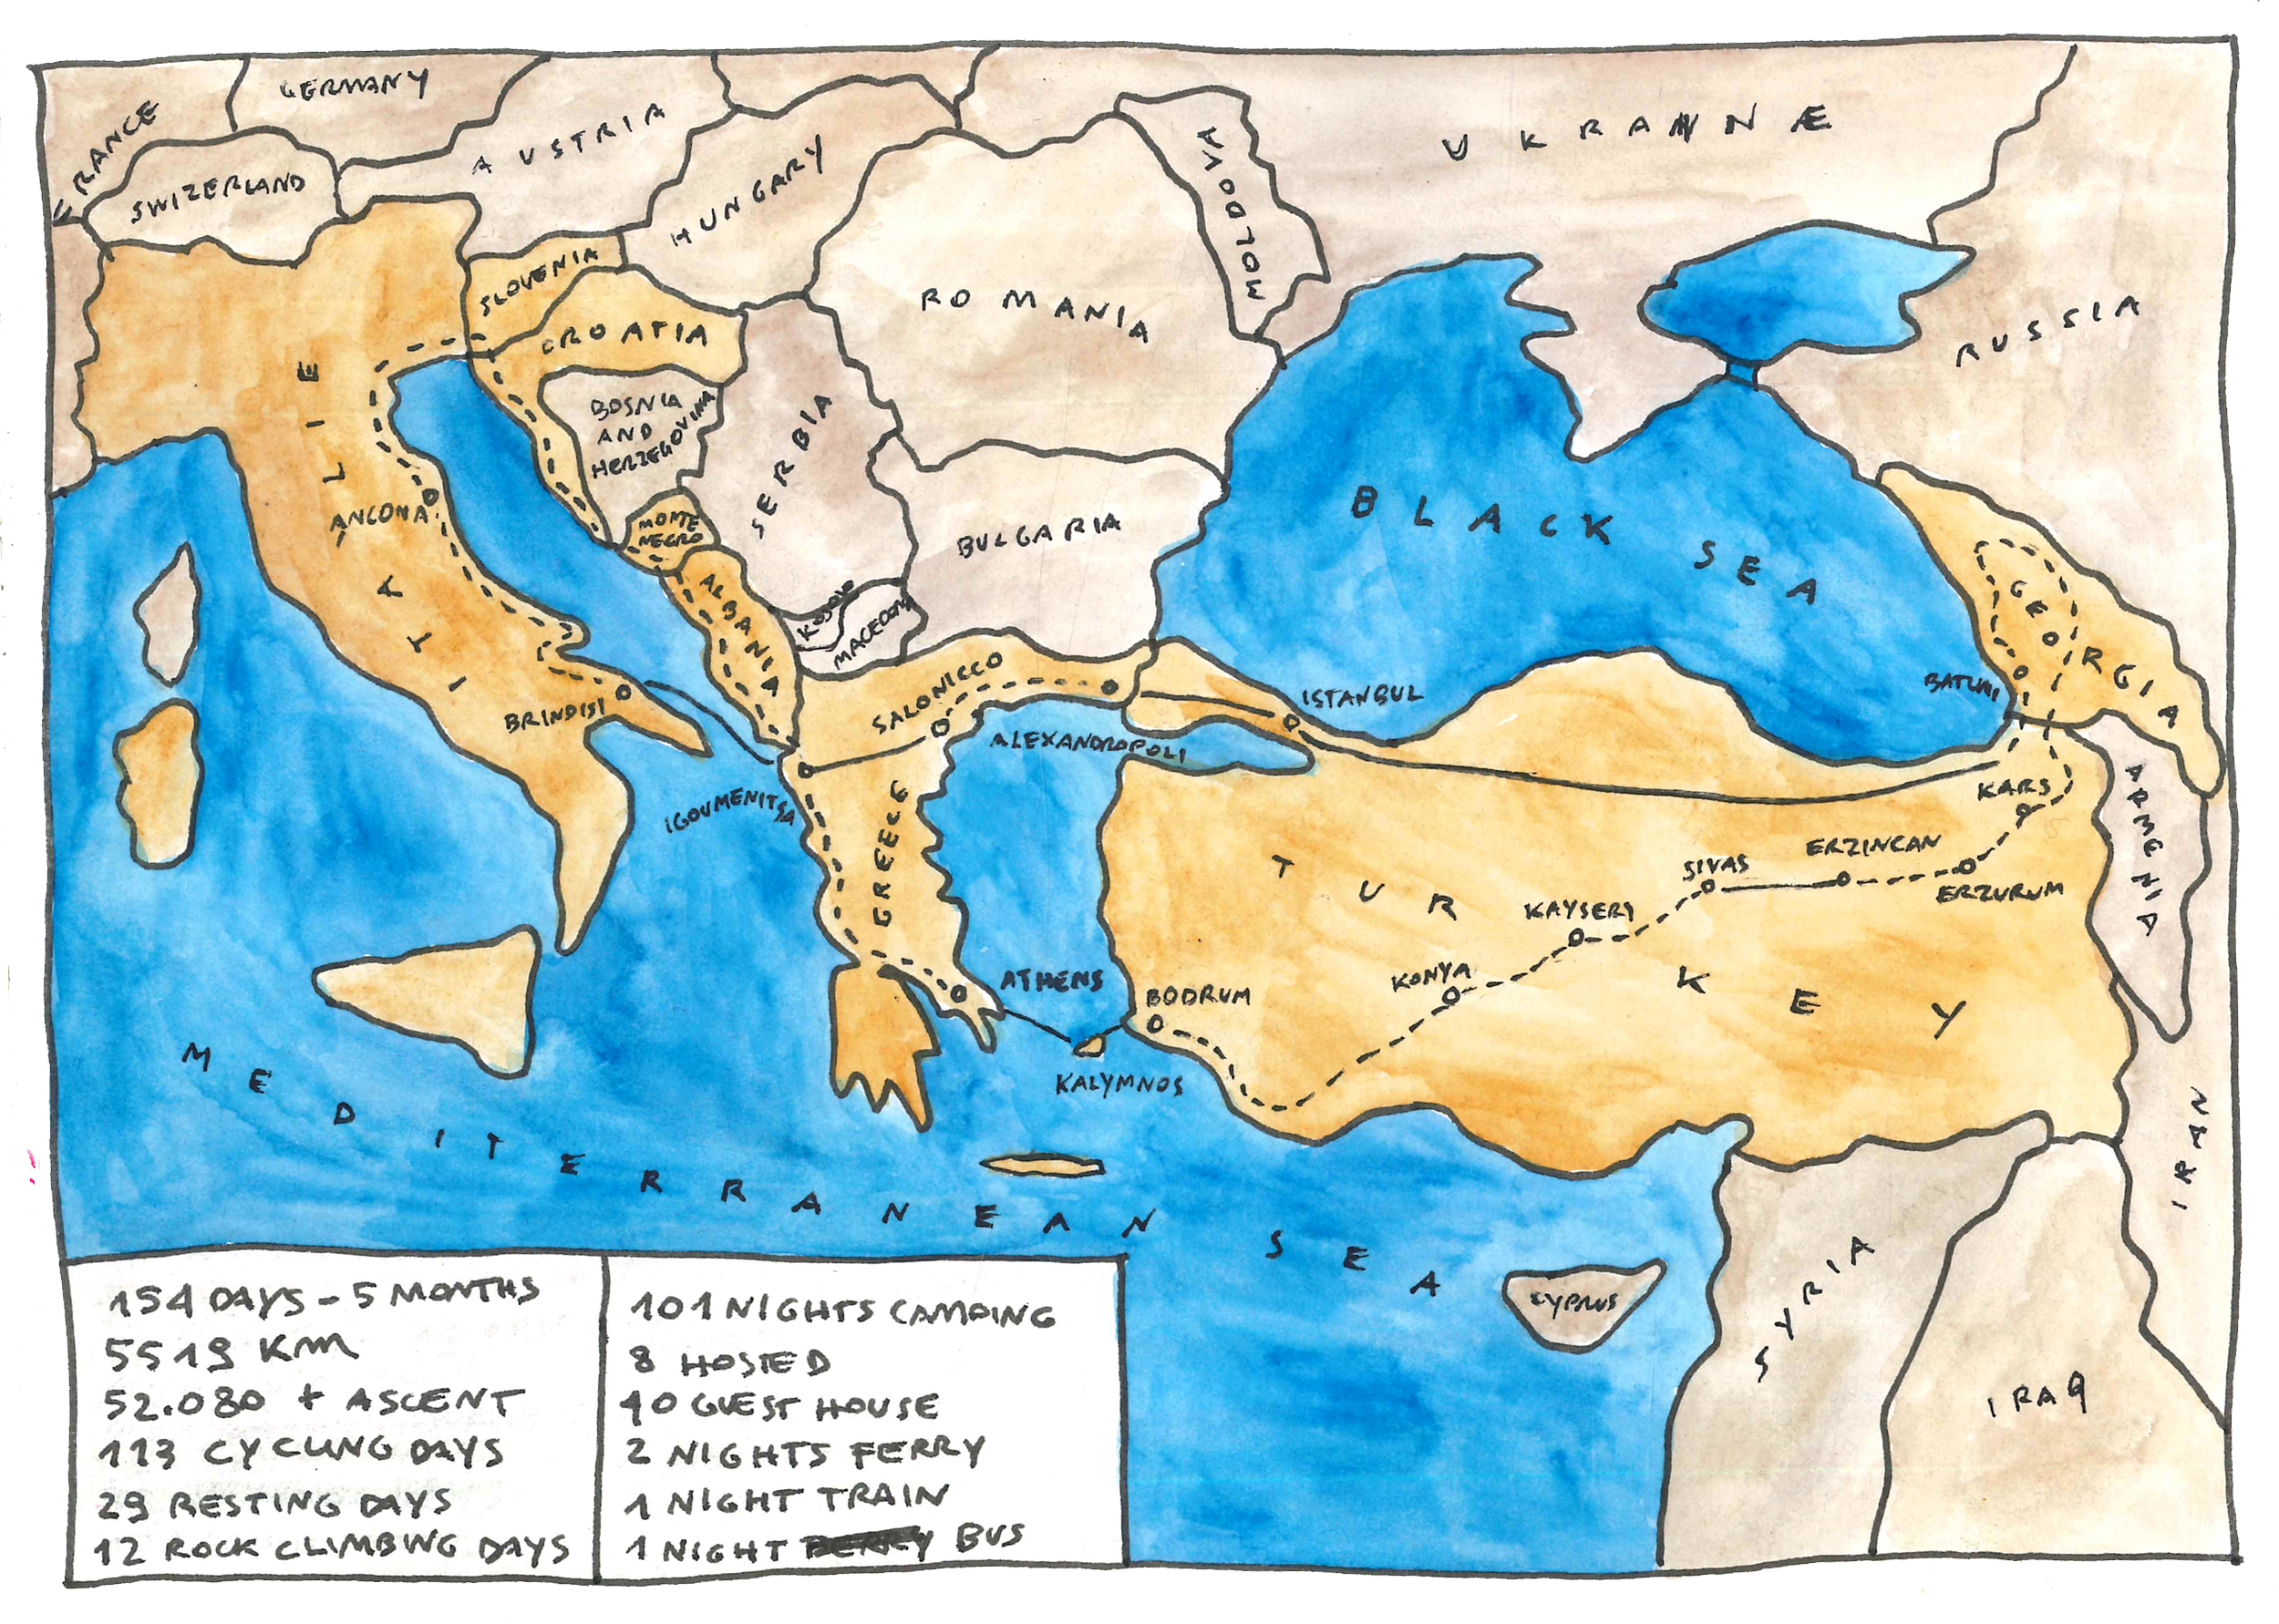 FRANCE
GERMANY
SWIZERLAND
AUSTRIA
HUNGARY
MOLDOVA
UKRAINE
RUSSIA
SLOVENIA
CROATIA
ROMANIA
ITALIE
BOSNIA
AND
HERZEGOVINA
SERBIA
BULGARIA
BLACK SEA
ANCONA
MONTE
NEGRO
ALBANIA
KOSOVO
MACEDONIA
GEORGIA
BATUMI
BRINDISI
SALONICCO
ALEXANDROPOLI
ISTANBUL
IGOUMENITSA
GREECE
KARS
ARMENIA
ERZINCAN
SIVAS
ERZURUM
KAYSERI
KONYA
TURKEY
ATHENS
BODRUM
KALYMNOS
MEDITERRANEAN SEA
IRAN
CYPRUS
SYRIA
IRAQ
154 DAYS - 5 MONTHS
5519 KM
52.080 + ASCENT
113 CYCLING DAYS
29 RESTING DAYS
12 ROCK CLIMBING DAYS
101 NIGHTS CAMPING
8 HOSTED
40 GUEST HOUSE
2 NIGHTS FERRY
1 NIGHT TRAIN
1 NIGHT BUS